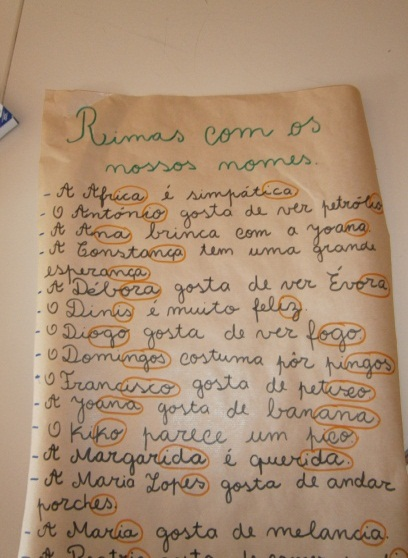 Reimas com os
nossos nomes.
- A África é simpática
- O António gosta de ver petróleo
- A Ana brinca com a Joana
- A Constança tem uma grande
esperança
- A Débora gosta de ver Évora
- O Dinis é muito feliz.
- O Diogo gosta de ver fogo.
- O Domingos costuma pôr pingos
- O Francisco gosta de petisco
- A Joana gosta de banana
- O Kiko parece um pico.
- A Margarida é querida.
- A Maria Lopes gosta de andar
porches.
- A Maria gosta de melancia.